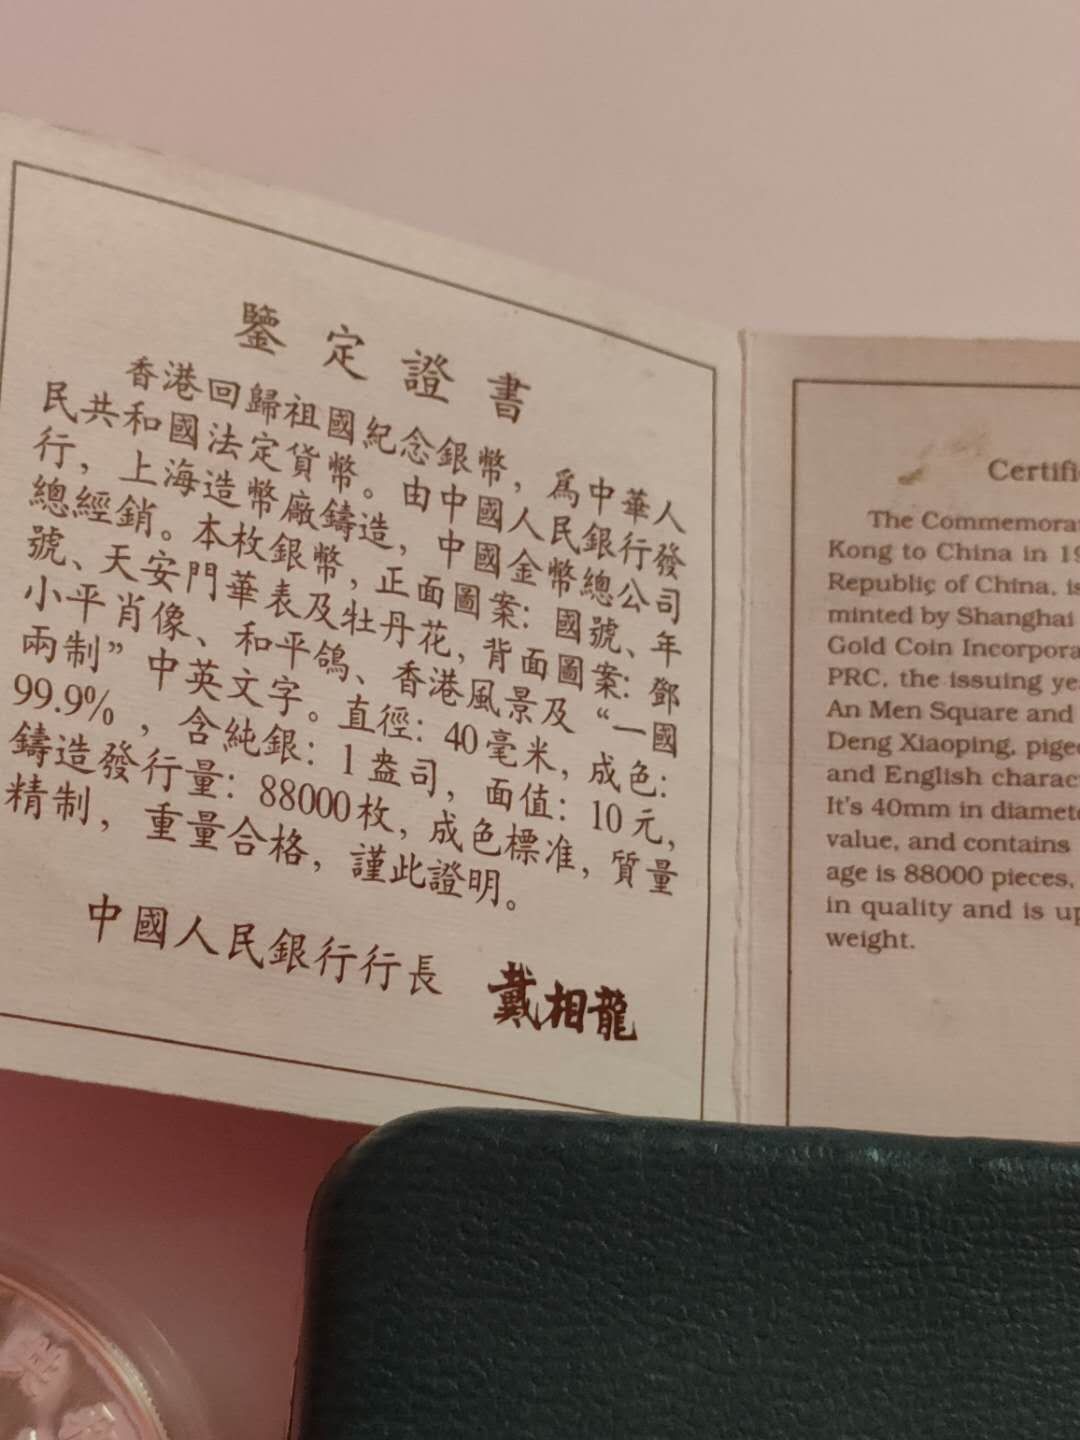 鑒定證書
香港回歸祖國紀念銀幣，爲中華人
民共和國法定貨幣。由中國人民銀行發
行，上海造幣廠鑄造，中國金幣總公司
總經銷。本枚銀幣，正面圖案：國號、年
號、天安門華表及牡丹花，背面圖案：鄧
小平肖像、和平鴿、香港風景及“一國
兩制”中英文字。直徑：40毫米，成色：
99.9%，含純銀：1盎司，面值：10元，
鑄造發行量：88000枚，成色標准，質量
精制，重量合格，謹此證明。
中國人民銀行行長 戴相龍
Certific
The Commemorat
Kong to China in 19
Republic of China, is
minted by Shanghai
Gold Coin Incorpora
PRC, the issuing ye
An Men Square and
Deng Xiaoping, pige
and English charac
It's 40mm in diamete
value, and contains
age is 88000 pieces,
in quality and is up
weight.